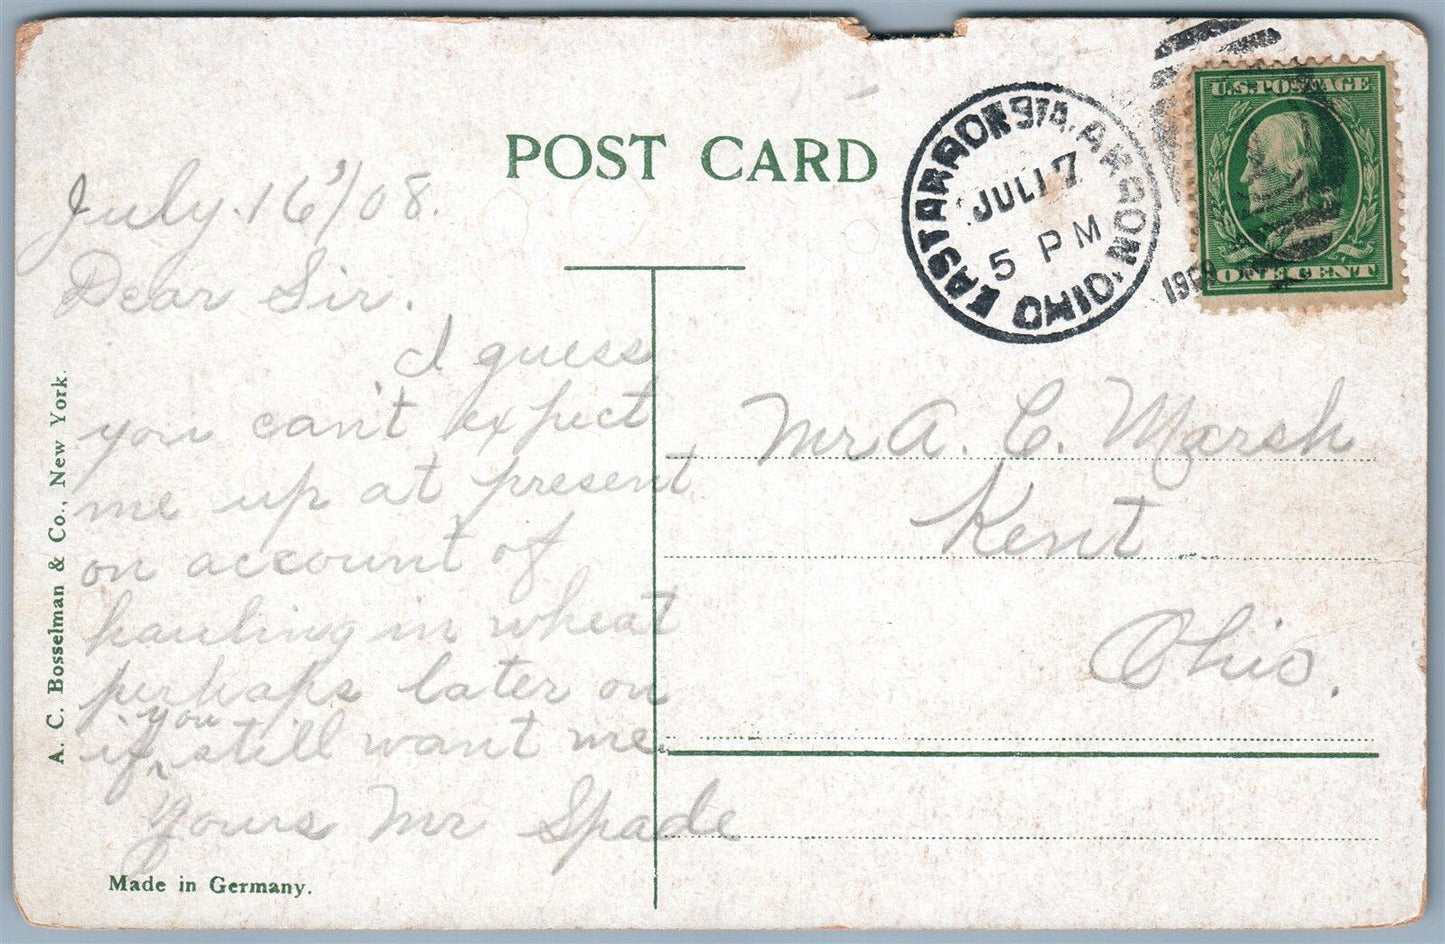 POST CARD
July. 16'/08.
Dear Sir.
I guess
you can't expect
me up at present
on account of
hauling in wheat
perhaps later on
if you still want me.
Yours Mr Spade
A. C. Bosselman & Co., New York.
Made in Germany.
EAST AKRON STA. AKRON, OHIO
JUL 17
5 PM
U.S. POSTAGE
ONE CENT
Mr A. C. Marsh
Kent
Ohio.